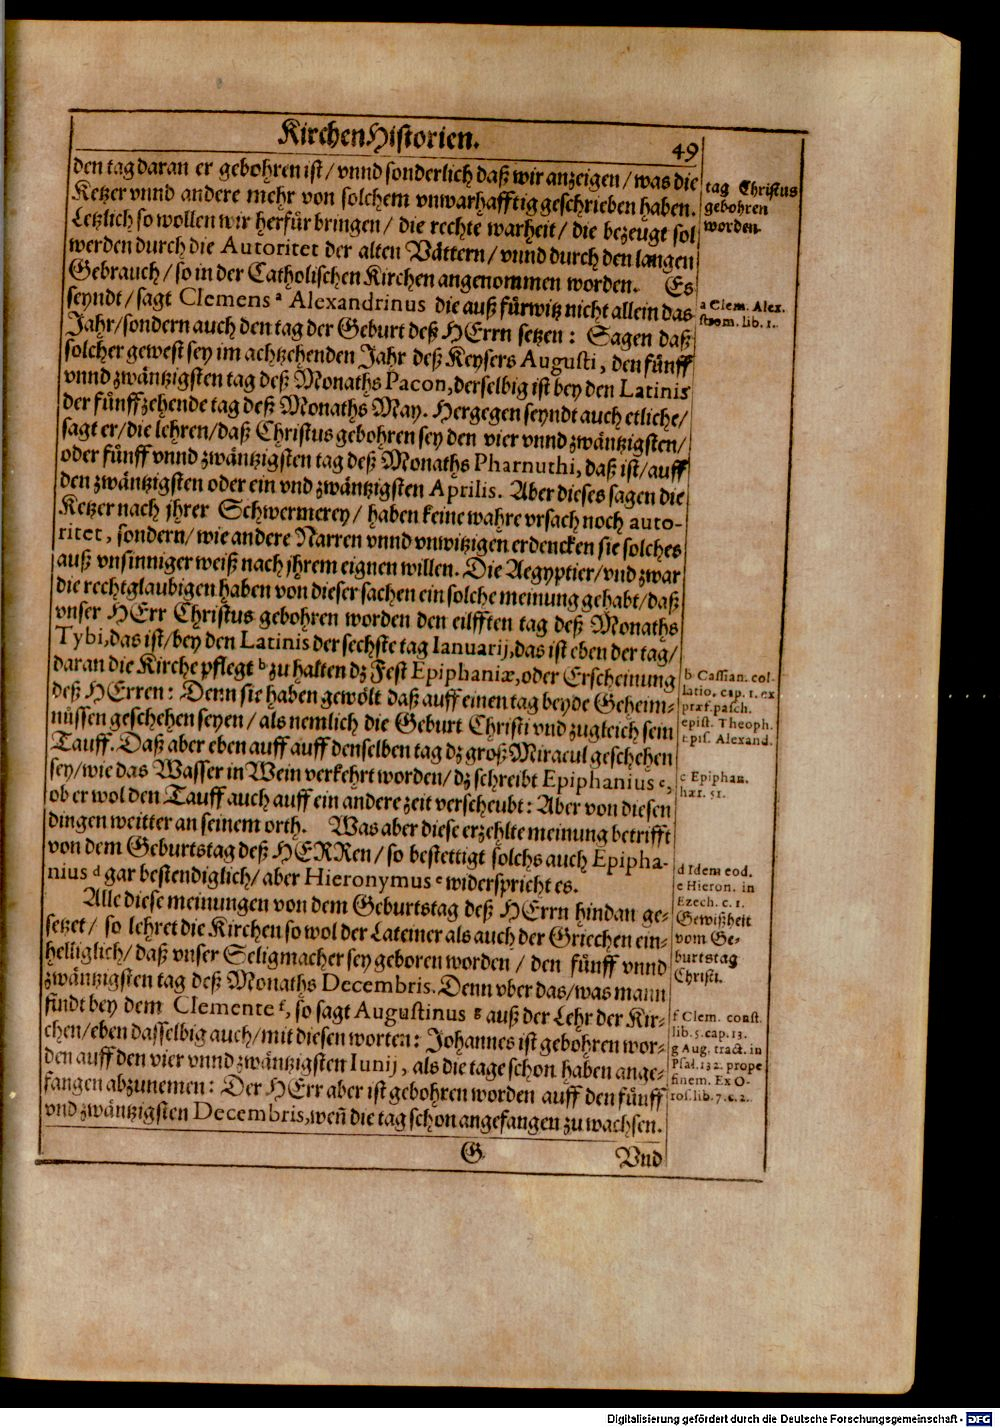 KirchenHistorien.
49
den tag daran er gebohren ist/ vnnd sonderlich daß wir anzeigen/ was die
Ketzer vnnd andere mehr von solchem vnwarhafftig geschrieben haben.
Letzlich so wollen wir herfür bringen/ die rechte warheit/ die bezeugt sol
werden durch die Autoritet der alten Vättern/ vnnd durch den langen
Gebrauch/ so in der Catholischen Kirchen angenommen worden. Es
seyndt/ sagt Clemens a Alexandrinus die auß fürwitz nicht allein das
Jahr/sondern auch den tag der Geburt deß HErrn setzen: Sagen daß
solcher gewest sey im achtzehenden Jahr deß Keysers Augusti, den fünff
vnnd zwäntzigsten tag deß Monaths Pacon, derselbig ist bey den Latinis
der fünffzehende tag deß Monaths May. Hergegen seyndt auch etliche/
sagt er/die lehren/daß Christus gebohren sey den vier vnnd zwäntzigsten/
oder fünff vnnd zwäntzigsten tag deß Monaths Pharnuthi, daß ist/auff
den zwäntzigsten oder ein vnd zwäntzigsten Aprilis. Aber dieses sagen die
Ketzer nach jhrer Schwermerey/ haben keine wahre vrsach noch auto-
ritet, sondern/ wie andere Narren vnnd vnwitzigen erdencken sie solches
auß vnsinniger weiß nach jhrem eignen willen. Die Aegyptier/vnd zwar
die rechtglaubigen haben von dieser sachen ein solche meinung gehabt/daß
vnser HErr Christus gebohren worden den eilfften tag deß Monaths
Tybi, das ist/bey den Latinis der sechste tag Ianuarij, das ist eben der tag/
daran die Kirche pflegt b zu halten dz Fest Epiphaniæ, oder Erscheinung
deß HErren: Denn sie haben gewölt daß auff einen tag beyde Geheim-
nüssen geschehen seyen/ als nemlich die Geburt Christi vnd zugleich sein
Tauff. Daß aber eben auff auff denselben tag dz groß Miracul geschehen
sey/wie das Wasser in Wein verkehrt worden/ dz schreibt Epiphanius c,
ob er wol den Tauff auch auff ein andere zeit verscheubt: Aber von diesen
dingen weitter an seinem orth. Was aber diese erzehlte meinung betrifft
von dem Geburtstag deß HERRen/ so bestettigt solchs auch Epipha-
nius d gar bestendiglich/ aber Hieronymus e widerspricht es.
Alle diese meinungen von dem Geburtstag deß HErrn hindan ge-
setzet/ so lehret die Kirchen so wol der Lateiner als auch der Griechen ein-
helliglich/ daß vnser Seligmacher sey geboren worden/ den fünff vnnd
zwäntzigsten tag deß Monaths Decembris. Denn vber das/was mann
findt bey dem Clemente f, so sagt Augustinus g auß der Lehr der Kir-
chen/eben dasselbig auch/mit diesen worten: Johannes ist gebohren wor-
den auff den vier vnnd zwäntzigsten Iunij, als die tage schon haben ange-
fangen abzunemen: Der HErr aber ist gebohren worden auff den fünff
vnd zwäntzigsten Decembris, weñ die tag schon angefangen zu wachsen.
G
Vnd
tag Christus
gebohren
worden.
a Clem. Alex.
strom. lib. 1.
b Cassian. col-
latio. cap. 1. ex
præf. pasch.
epist. Theoph.
epis. Alexand.
c Epiphan.
hær. 51.
d Idem eod.
e Hieron. in
Ezech. c. 1.
Gewißheit
vom Ge-
burtstag
Christi.
f Clem. const.
lib. 5. cap. 13.
g Aug. tract. in
Psal. 132. prope
finem. Ex O-
ros. lib. 7. c. 2.
Digitalisierung gefördert durch die Deutsche Forschungsgemeinschaft - DFG